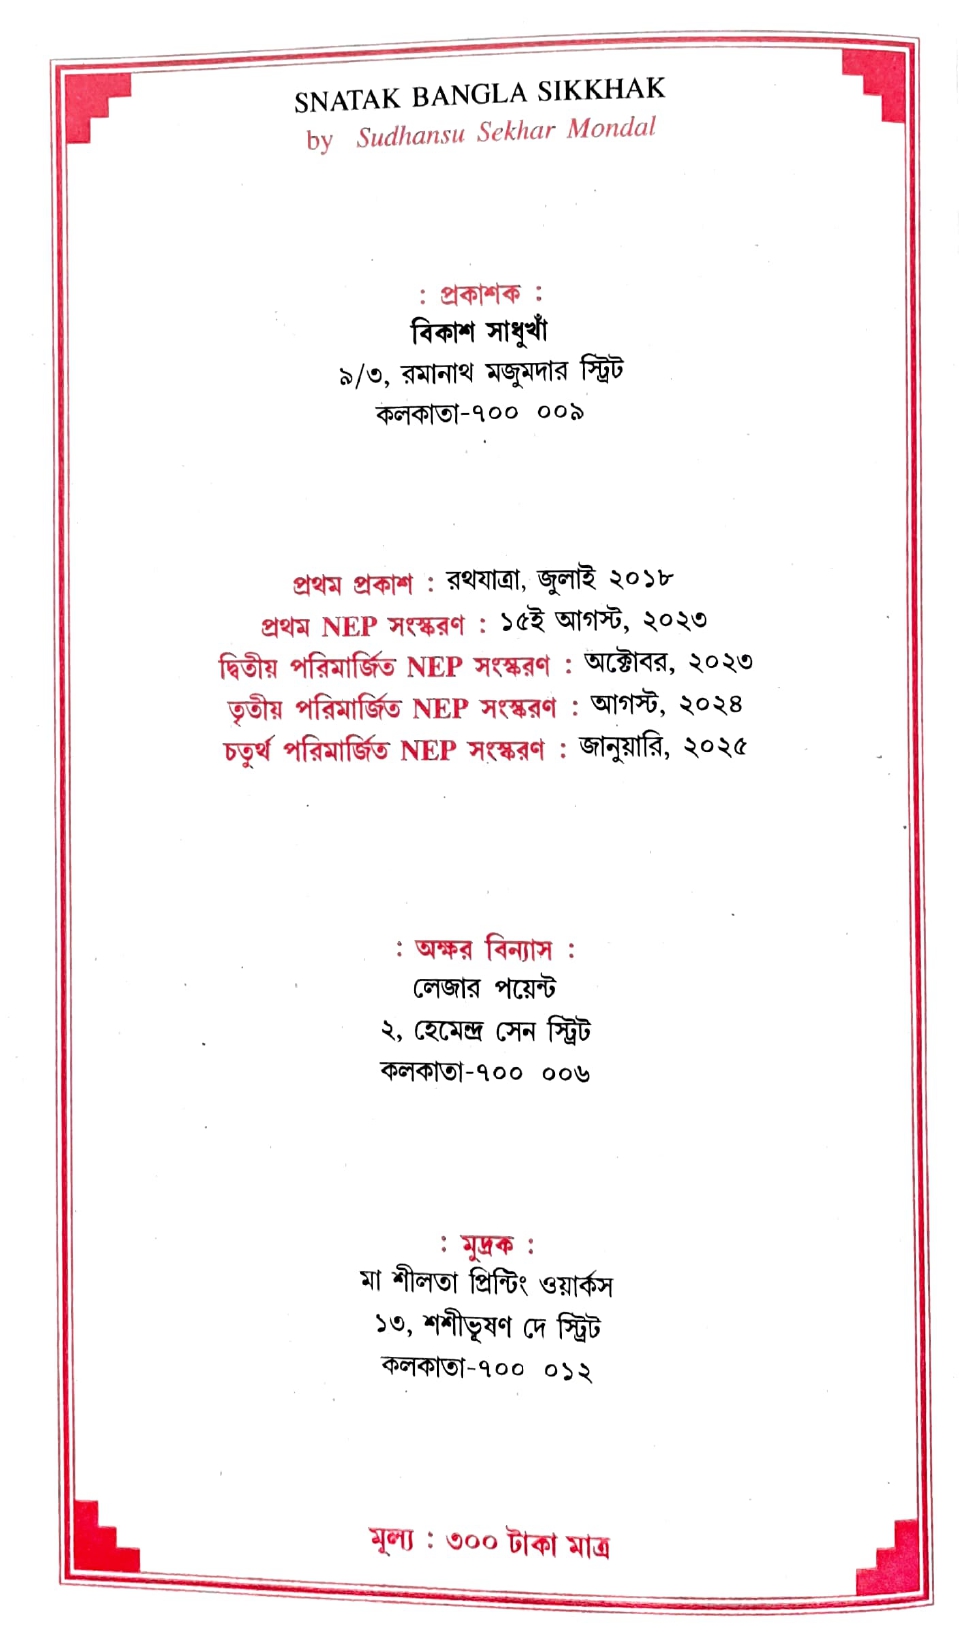 SNATAK BANGLA SIKKHAK
by Sudhansu Sekhar Mondal
: প্রকাশক :
বিকাশ সাধুখাঁ
৯/৩, রমানাথ মজুমদার স্ট্রিট
কলকাতা-৭০০ ০০৯
প্রথম প্রকাশ : রথযাত্রা, জুলাই ২০১৮
প্রথম NEP সংস্করণ : ১৫ই আগস্ট, ২০২৩
দ্বিতীয় পরিমার্জিত NEP সংস্করণ : অক্টোবর, ২০২৩
তৃতীয় পরিমার্জিত NEP সংস্করণ : আগস্ট, ২০২৪
চতুর্থ পরিমার্জিত NEP সংস্করণ : জানুয়ারি, ২০২৫
: অক্ষর বিন্যাস :
লেজার পয়েন্ট
২, হেমেন্দ্র সেন স্ট্রিট
কলকাতা-৭০০ ০০৬
: মুদ্রক :
মা শীলতা প্রিন্টিং ওয়ার্কস
১৩, শশীভূষণ দে স্ট্রিট
কলকাতা-৭০০ ০১২
মূল্য : ৩০০ টাকা মাত্র